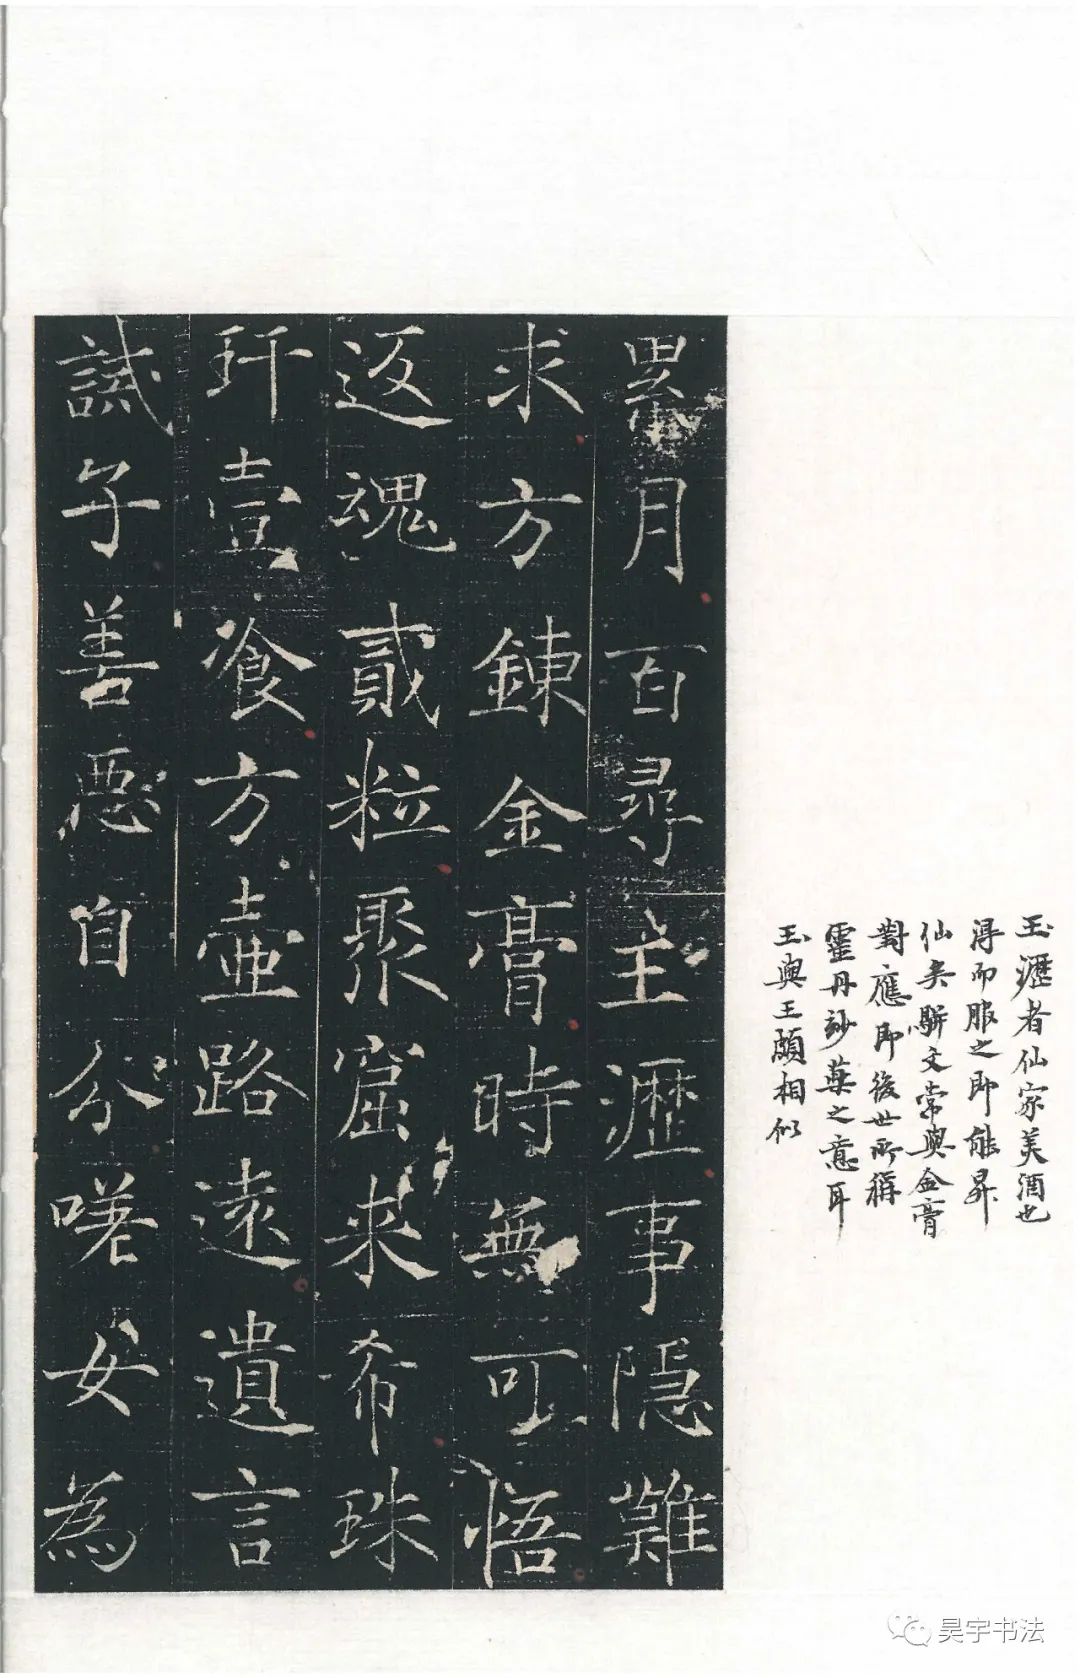 玉瀝者仙家美酒也
得而服之即能昇
仙矣駢文常與金膏
對應即後世所稱
靈丹妙藥之意耳
玉與王頗相似
累月百尋玉瀝事隱難
求方鍊金膏時無可悟
返魂貳粒聚窟來希珠
玕壹飡方壺路遠遺言
誡子善惡自分嗟女為
昊宇书法